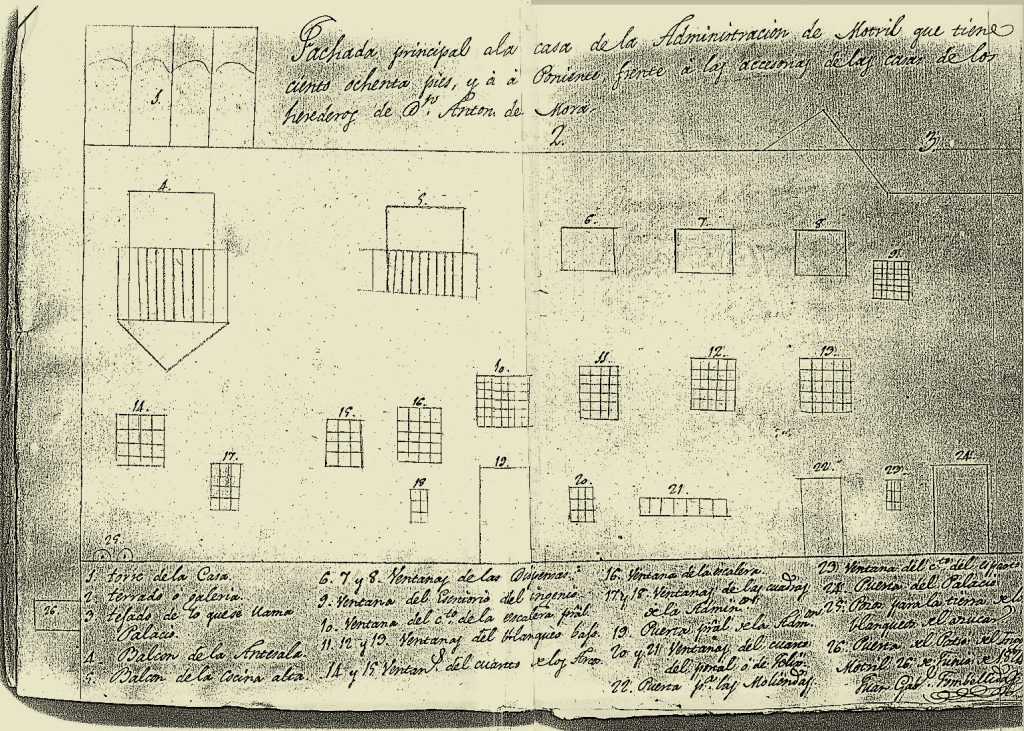 Fachada principal ala casa de la Administracion de Motril que tiene
ciento ochenta pies, y à à Poniente, frente à las accesorias de las casas de los
herederos de Dn. Anton. de Mora.
1.
2.
3.
4.
5.
6.
7.
8.
9.
10.
11.
12.
13.
14.
15.
16.
17.
18
19.
20.
21.
22.
23.
24.
25.
26.
1. torre de la Casa.
2. terrado o galeria.
3. tejado de lo que se llama
Palacio.
4. Balcon de la Antesala.
5. Balcon de la Cocina alta.
6. 7 y 8. Ventanas de las
9. Ventana del del ingenio.
10. Ventana del cto. de la escalera pral.
11. 12 y 13. Ventanas del blanqueo baxo.
14 y 15 Ventans. del cuarto
16. Ventana de la escalera.
17 y 18. Ventanas de las cuadras
de la Admon.
19. Puerta pral de la Adm.on
20 y 21 Ventanas del cuarto
del portal ô de
22. Puerta pa. las Moliendas.
23. Ventana del cto. del
24. Puerta del Palacio
25. para la tierra de los
blanqueos el azucar
26. Puerta del Patio
Motril 26 de Junio de
Juan Gabl.